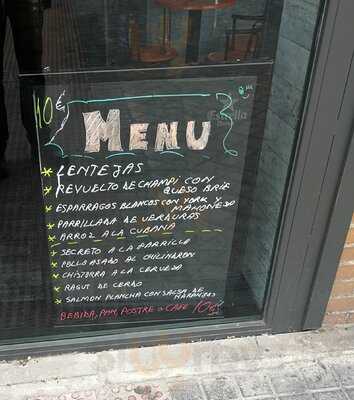 10€
MENU
Estrella
* LENTEJAS
* REVUELTO DE CHAMPI CON
QUESO BRIE
* ESPARRAGOS BLANCOS CON YORK Y
MAHONESA
* PARRILLADA DE VERDURAS
* ARROZ A LA CUBANA
* SECRETO A LA PARRILLA
* POLLO ASADO AL CHILINDRON
* CHISTORRA A LA CERVEZA
* RAGUT DE CERDO
* SALMON PLANCHA CON SALSA DE
NARANJAS
BEBIDA, PAN, POSTRE O CAFE 10€